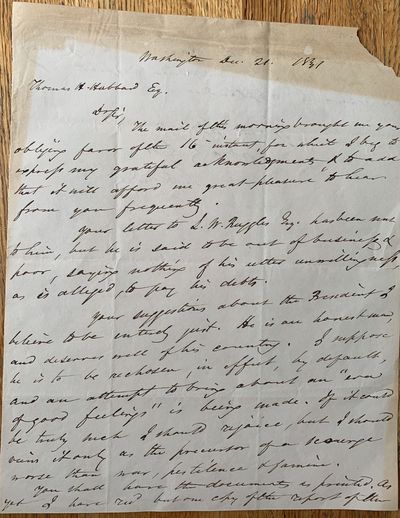 Washington Dec. 21. 1831
Thomas H. Hubbard Esq.
D Sir,
The mail of this morning brought me your
obliging favor of the 16th instant, for which I beg to
express my grateful acknowledgments & to add
that it will afford me great pleasure to hear
from you frequently.
Your letter to S. W. Ruggles Esq. has been sent
to him, but he is said to be out of business &
poor, saying nothing of his utter unwillingness,
as is alleged, to pay his debts.
Your suggestions about the President I
believe to be entirely just. He is an honest man,
and deserves well of his country. I suppose
he is to be rechosen in effect, by default,
and an attempt to bring about an "era
of good feelings" is being made. If it could
be truly such I should rejoice, but I should
view it only as the precursor of a scourge
worse than war, pestilence & famine.
You shall have the documents as printed. As
yet I have recd but one copy of the report of the